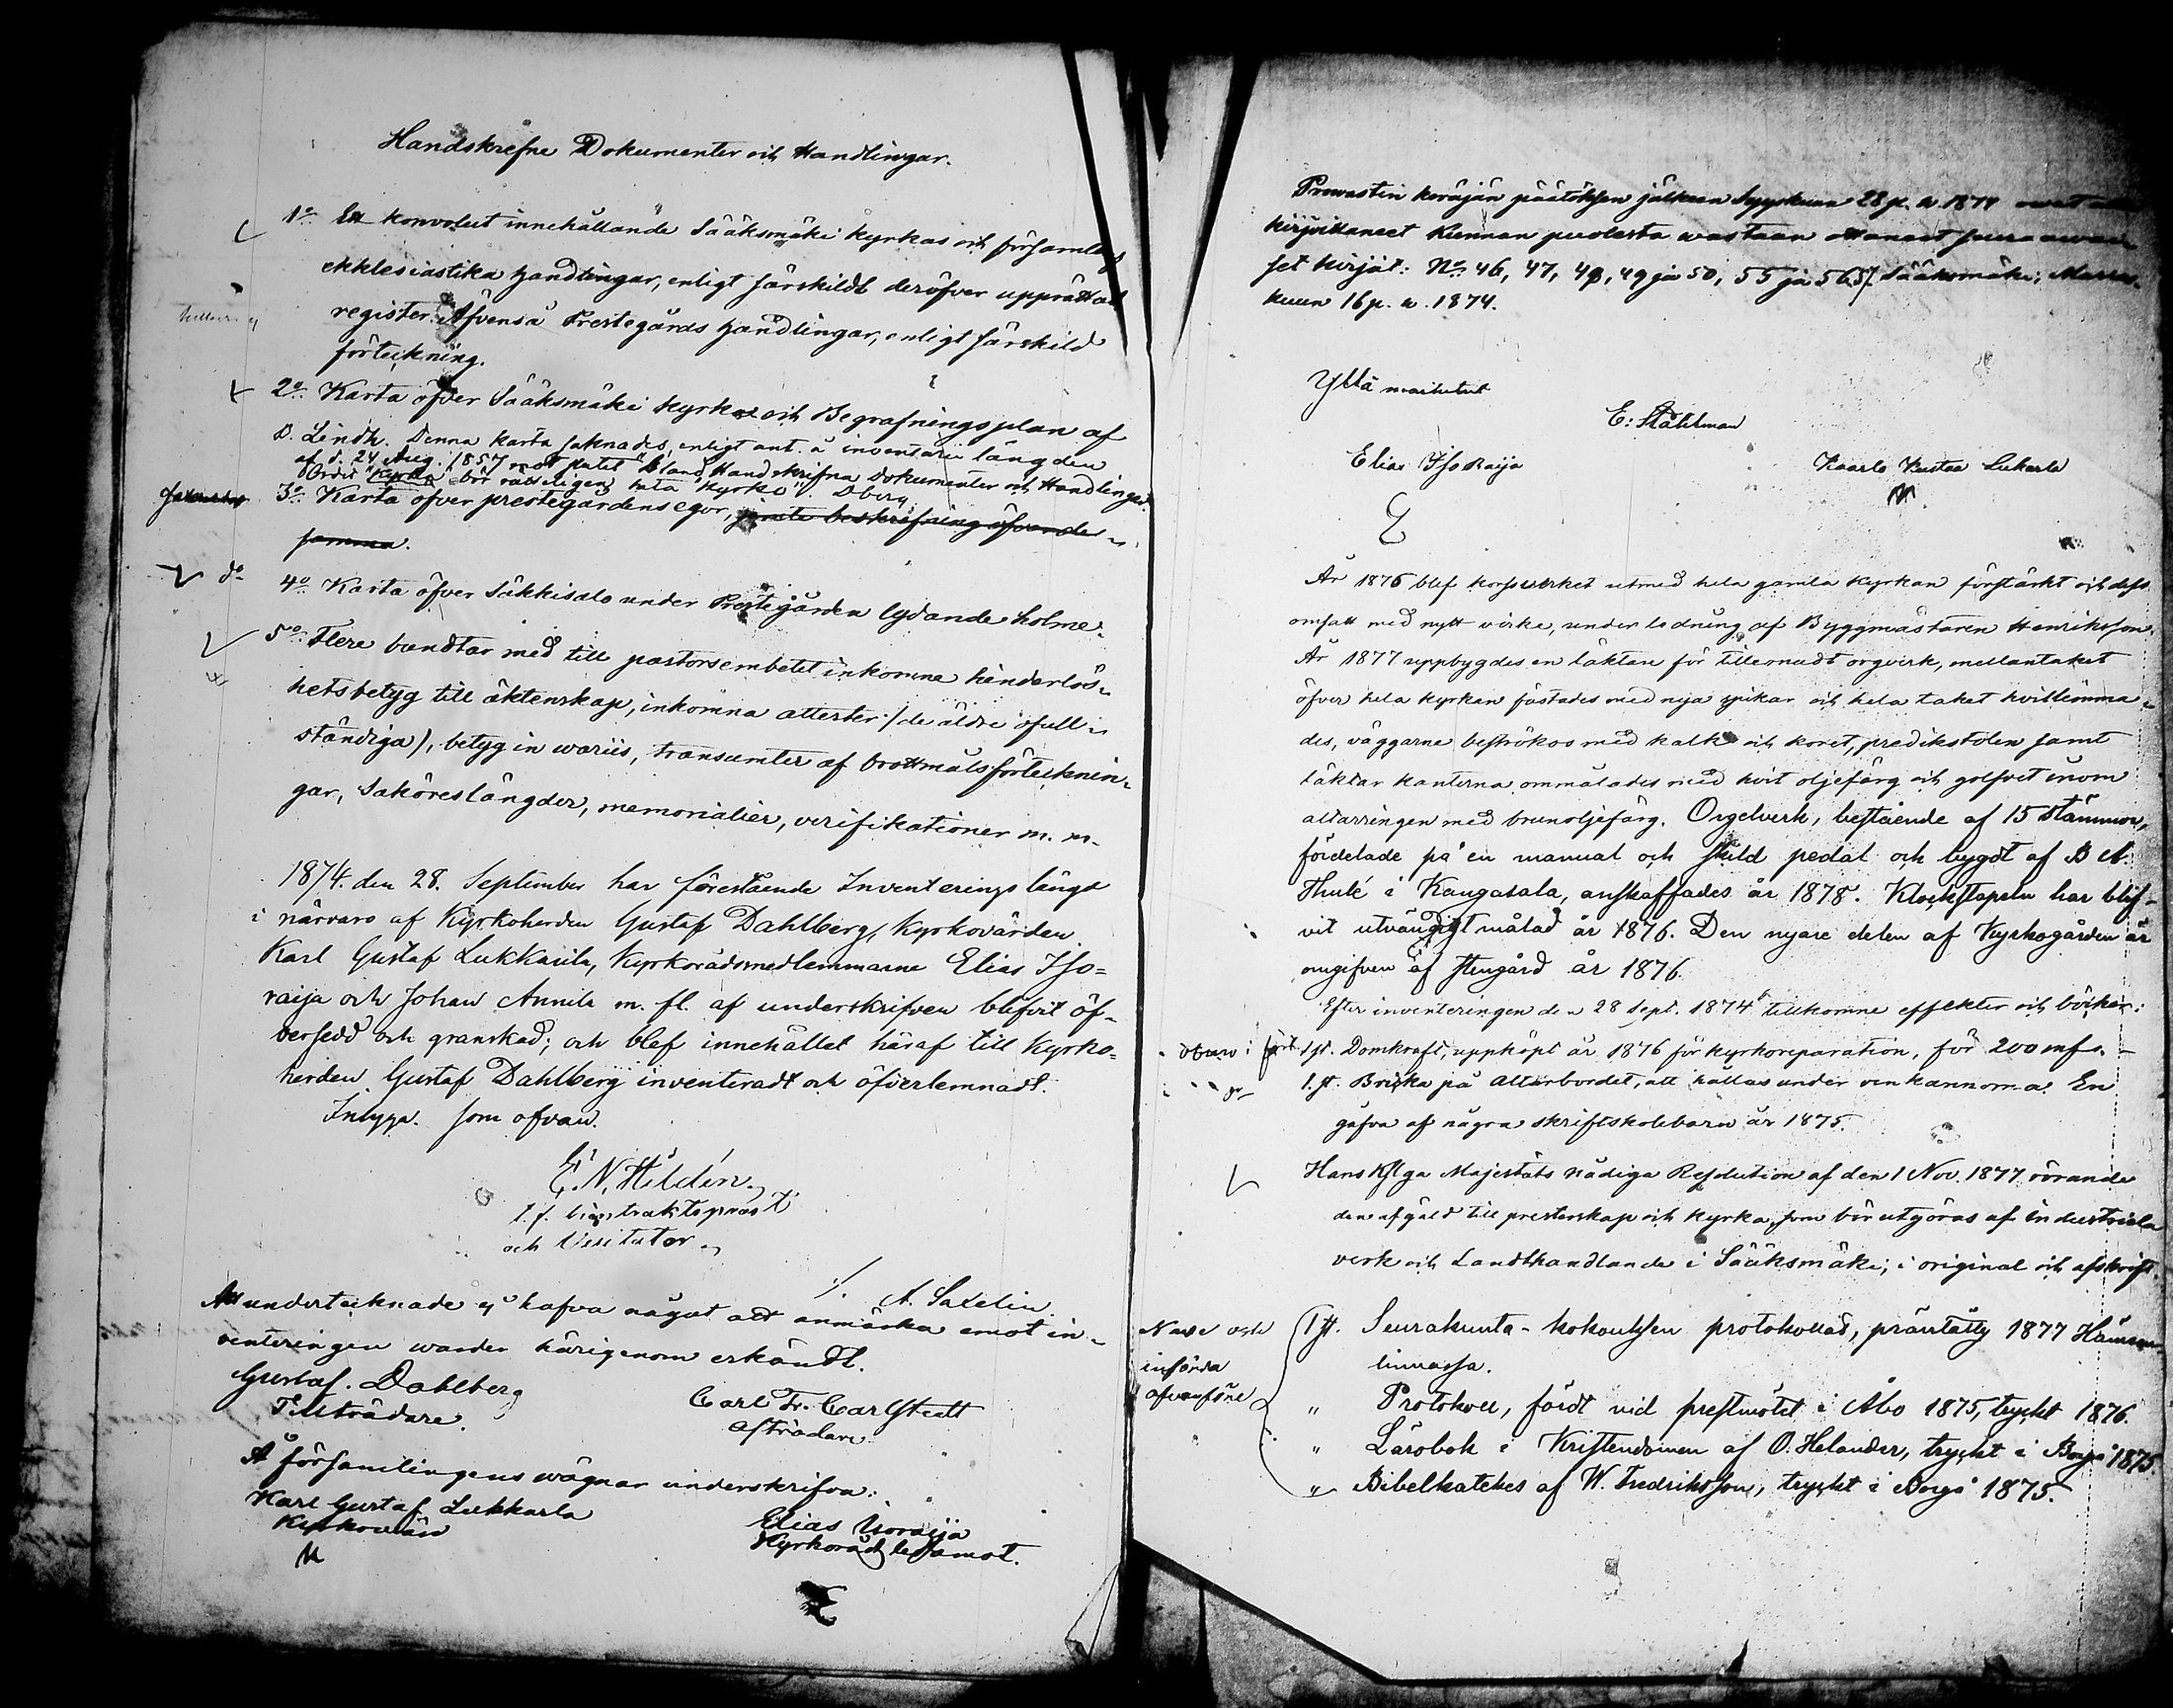 Handskrefne Dokumenter och Handlingar.
1o Ett konvolut innehållande Sääksmäki kyrkas och församlings
ekklesiastika handlingar, enligt särskildt deröfver upprättadt
register. Äfvenså Prestegårds handlingar, enligt särskild
förteckning.
2o Karta öfver Sääksmäki kyrka och Begrafningsplan af
D. Lindh. Denna karta saknades, enligt ant. å inventarielängden
af d. 24 Aug. 1857 mot slutet "bland Handskrifna Dokumenter och Handlingar.
Ordet "kyrka" bör rätteligen heta "kyrko". Dberg
3o Karta öfver prestegårdens egor, jemte beskrifning öfver den-
samma.
do 4o Karta öfver Säkkisalo under Prestegården lydande holme.
5o Flere bundtar med till pastorsembetet inkomne hinderlös-
hetsbetyg till äktenskap, inkomna attester (de äldre ofull-
ständiga), betyg in variis, transumter af brottmålsförtecknin-
gar, Saköreslängder, memorialier, verifikationer m. m.
1874. den 28. September har förestående Inventeringslängd
i närvaro af Kyrkoherden Gustaf Dahlberg, Kyrkovärden
Karl Gustaf Lukkarila, Kyrkorådsmedlemmarne Elias Iso=
raija och Johan Annila m. fl. af underskrifven blifvit öf-
versedd och granskad; och blef innehållet häraf till Kyrko=
herden Gustaf Dahlberg inventeradt och öfverlemnadt.
In loco som ofvan.
E. N. Hildén.
t. f. kontraktsprost
och Visitator.
A. Saxelin
Att undertecknade ej hafva något att anmärka emot in-
venteringen warder härigenom erkändt.
Gustaf. Dahlberg
Tillträdare.
Carl Fr. Carlstedt
afträdare
Å församlingens wägnar underskrifva:
Karl Gustaf Lukkarla
Kyrkovärd
Elias Isoraija
Kyrkoråds ledamot.
Prowastin keräjän päätöksen jälkeen Syyskuun 28 p. w. 1874 owat
kirjoittaneet Kunnan puolesta wastaan ottaneet seuraawai-
set kirjat: No 46, 47, 48, 49 ja 50, 55 ja 56 57 Sääksmäki; Marras-
kuun 16 p. w. 1874.
Yllä mainitut
E: Ståhlman
Elias Iso Raija
Kaarlo Kustaa Lukarla
År 1876 blef korsverket utmed hela gamla kyrkan förstärkt och dess
omfatt med nytt virke, under ledning af Byggmästaren Henriksson.
År 1877 uppbygdes en läktare för tillernadt orgverk, mellantaket
öfver hela kyrkan fästades med nya spikar och hela taket hvitlimma-
des, väggarne beströkos med kalk och koret, predikstolen samt
läktar kanterna ommålades med hvit oljefärg och golfvet inom
altarringen med brun oljefärg. Orgelverk, bestående af 15 stämmor,
fördelade på en manual och skild pedal och bygdt af B A.
Thulé i Kangasala, anskaffades år 1878. Klockstapeln har blif-
vit utvändigt målad år 1876. Den nyare delen af Kyrkogården är
omgifven af stengård år 1876.
Efter inventeringen den 28 Sept. 1874 tillkomne effekter och böcker:
1 st. Domkraft, uppköpt år 1876 för kyrkoreparation, för 200 mfs. -
1. st. Bricka på Altarbordet, att hållas under vinkannorna. En
gåfva af några skriftskolebarn år 1875.
Hans Kjlga Majestäts nådiga Resolution af den 1 Nov. 1877 rörande
den afgäld till presterskap och kyrka, som bör utgöras af industriela
verk och Landthandlande i Sääksmäki; i original och afskrift.
1 st. Seurakunta-kokouksen protokollat, präntätty 1877 Hämeen-
linnassa.
införda
ofvanföre
" Protokoll, fördt vid prestmötet i Åbo 1875, tryckt 1876.
" Lärobok i Kristendomen af O. Helander, tryckt i Borgå 1875.
" Bibelkatekes af W. Fredriksson, tryckt i Borgå 1875.